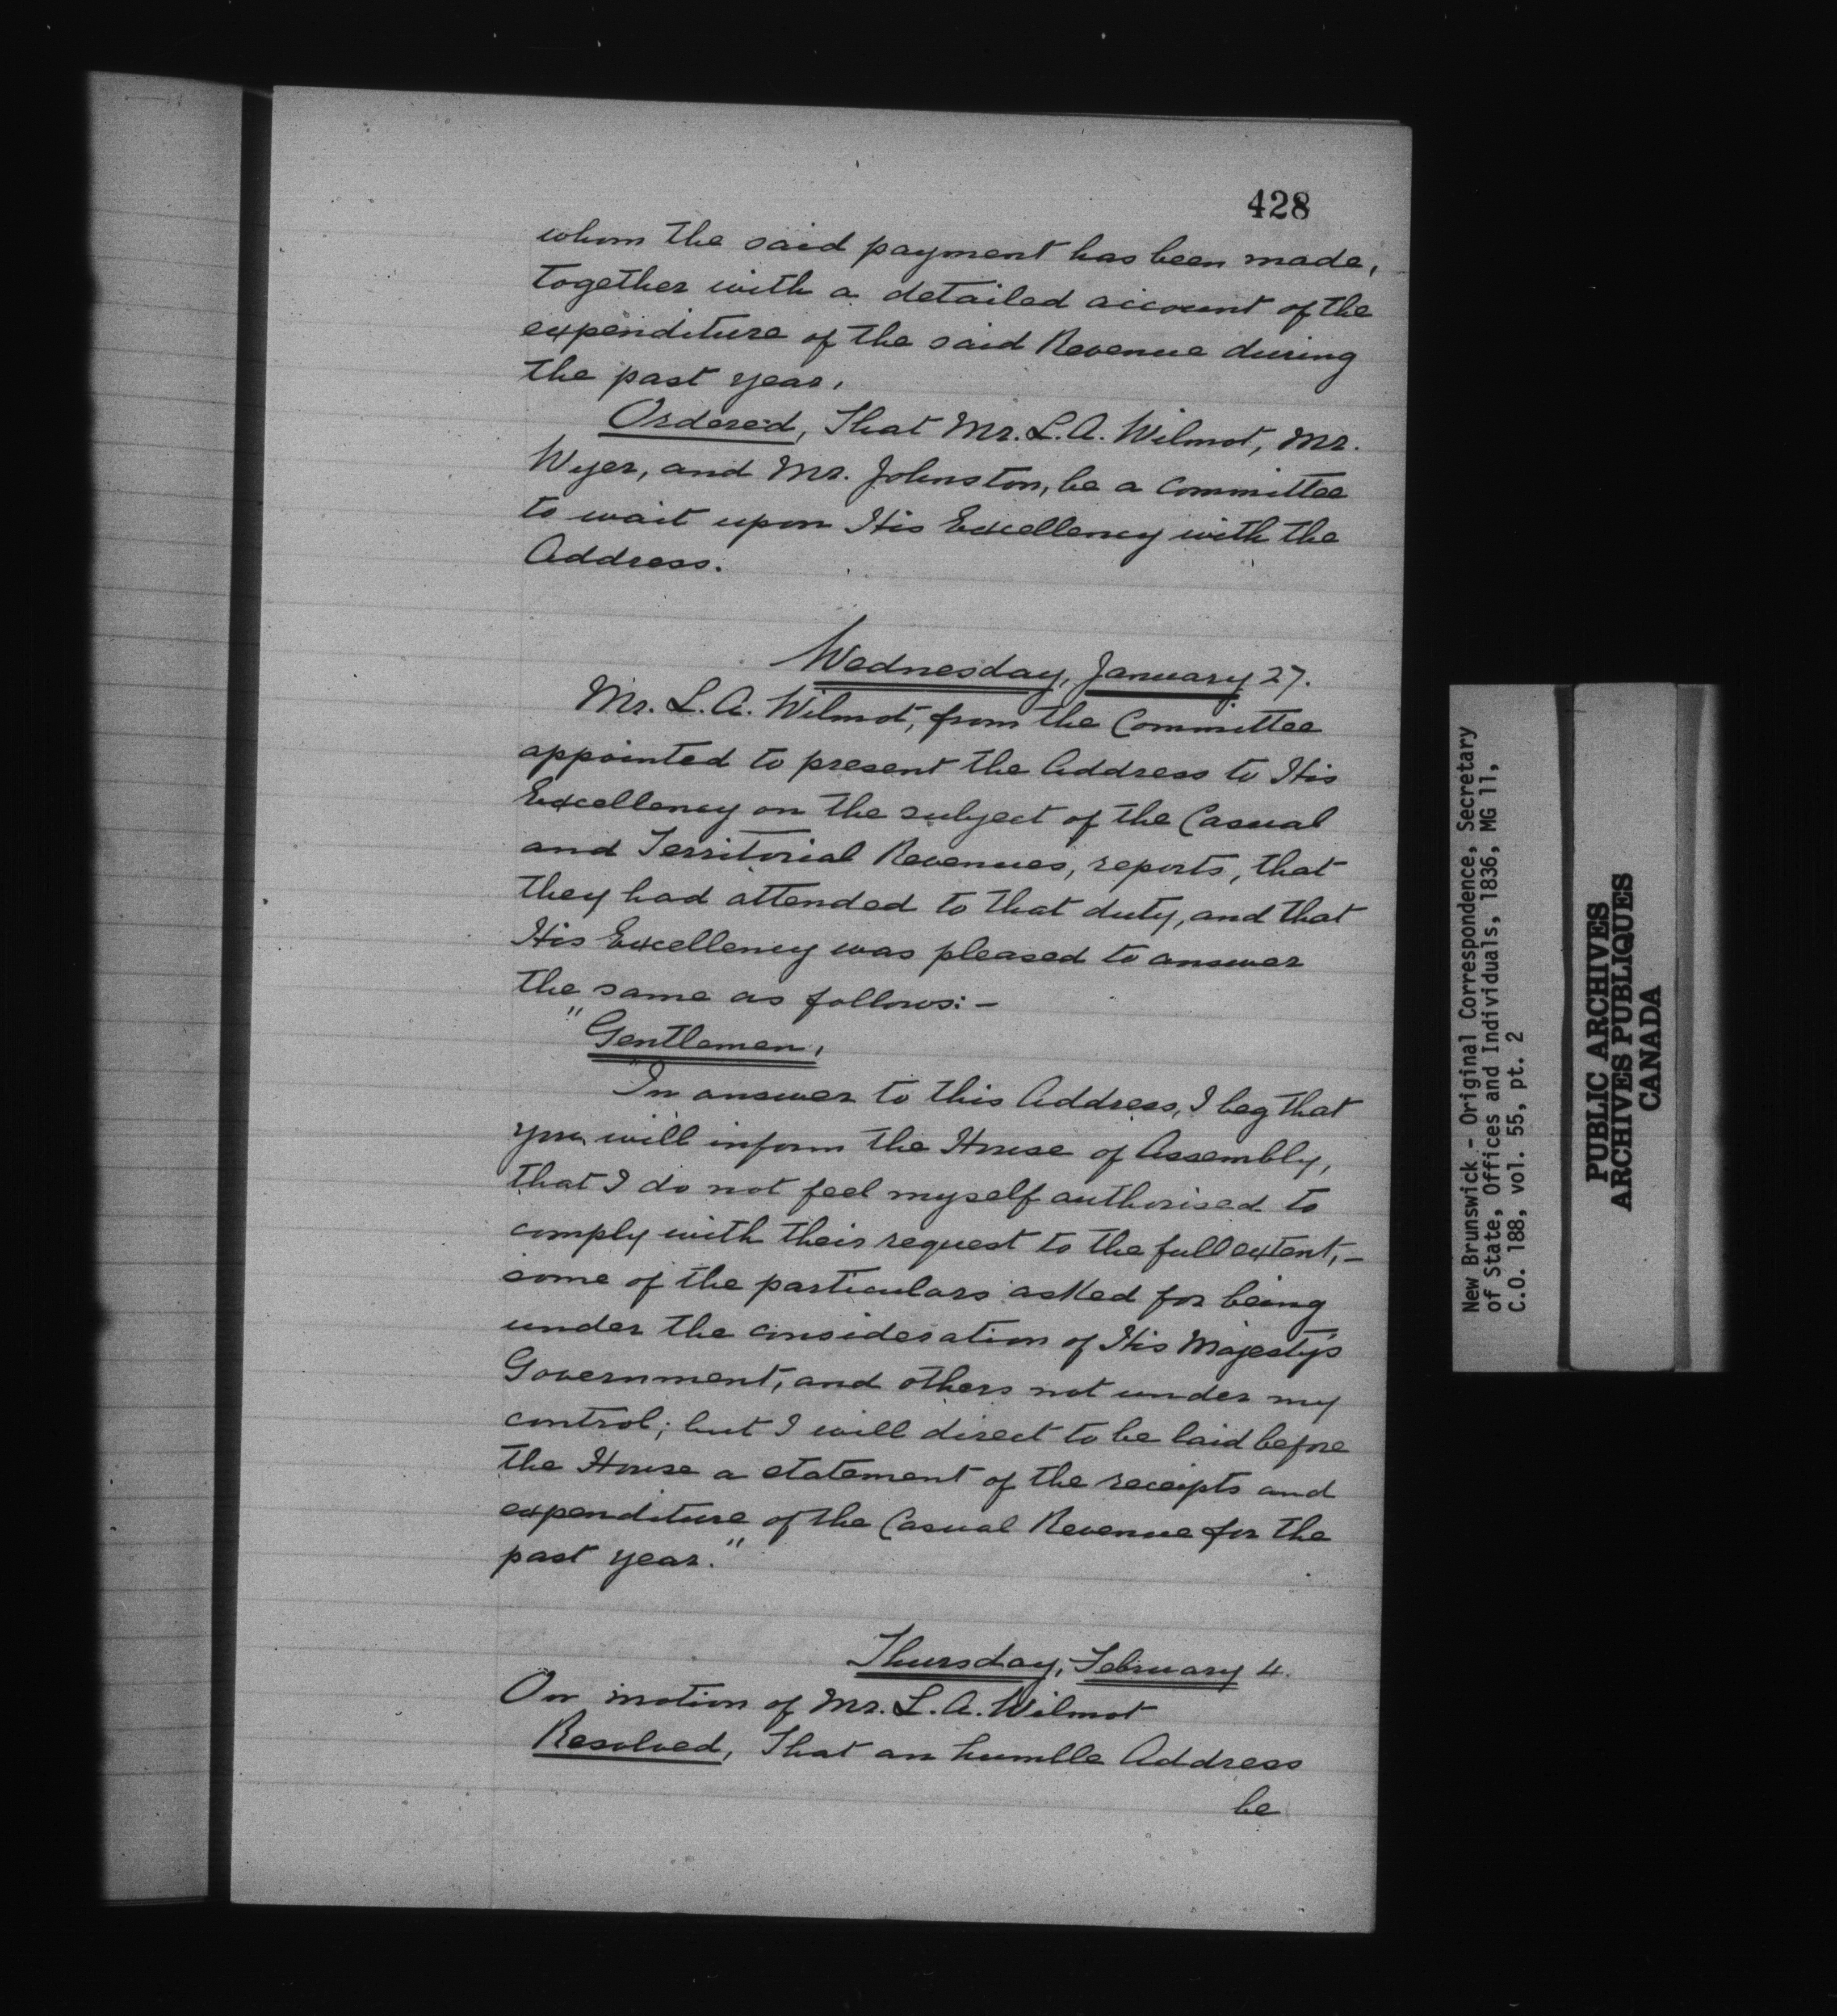 428
whom the said payment has been made,
together with a detailed account of the
expenditure of the said Revenue during
the past year.
Ordered, That Mr. L. A. Wilmot, Mr.
Wyer, and Mr. Johnston, be a Committee
to wait upon His Excellency with the
Address.
Wednesday, January 27.
Mr. L. A. Wilmot, from the Committee
appointed to present the Address to His
Excellency on the subject of the Casual
and Territorial Revenues, reports, that
they had attended to that duty, and that
His Excellency was pleased to answer
the same as follows:-
"Gentlemen,
"In answer to this Address, I beg that
you will inform the House of Assembly,
that I do not feel myself authorised to
comply with their request to the full extent,-
some of the particulars asked for being
under the consideration of His Majesty's
Government, and others not under my
control; but I will direct to be laid before
the House a statement of the receipts and
expenditure of the Casual Revenue for the
past year."
Thursday, February 4.
On motion of Mr. L. A. Wilmot
Resolved, That an humble Address
be
New Brunswick - Original Correspondence, Secretary
of State, Offices and Individuals, 1836, MG 11,
C.O. 188, vol. 55, pt. 2
PUBLIC ARCHIVES
ARCHIVES PUBLIQUES
CANADA